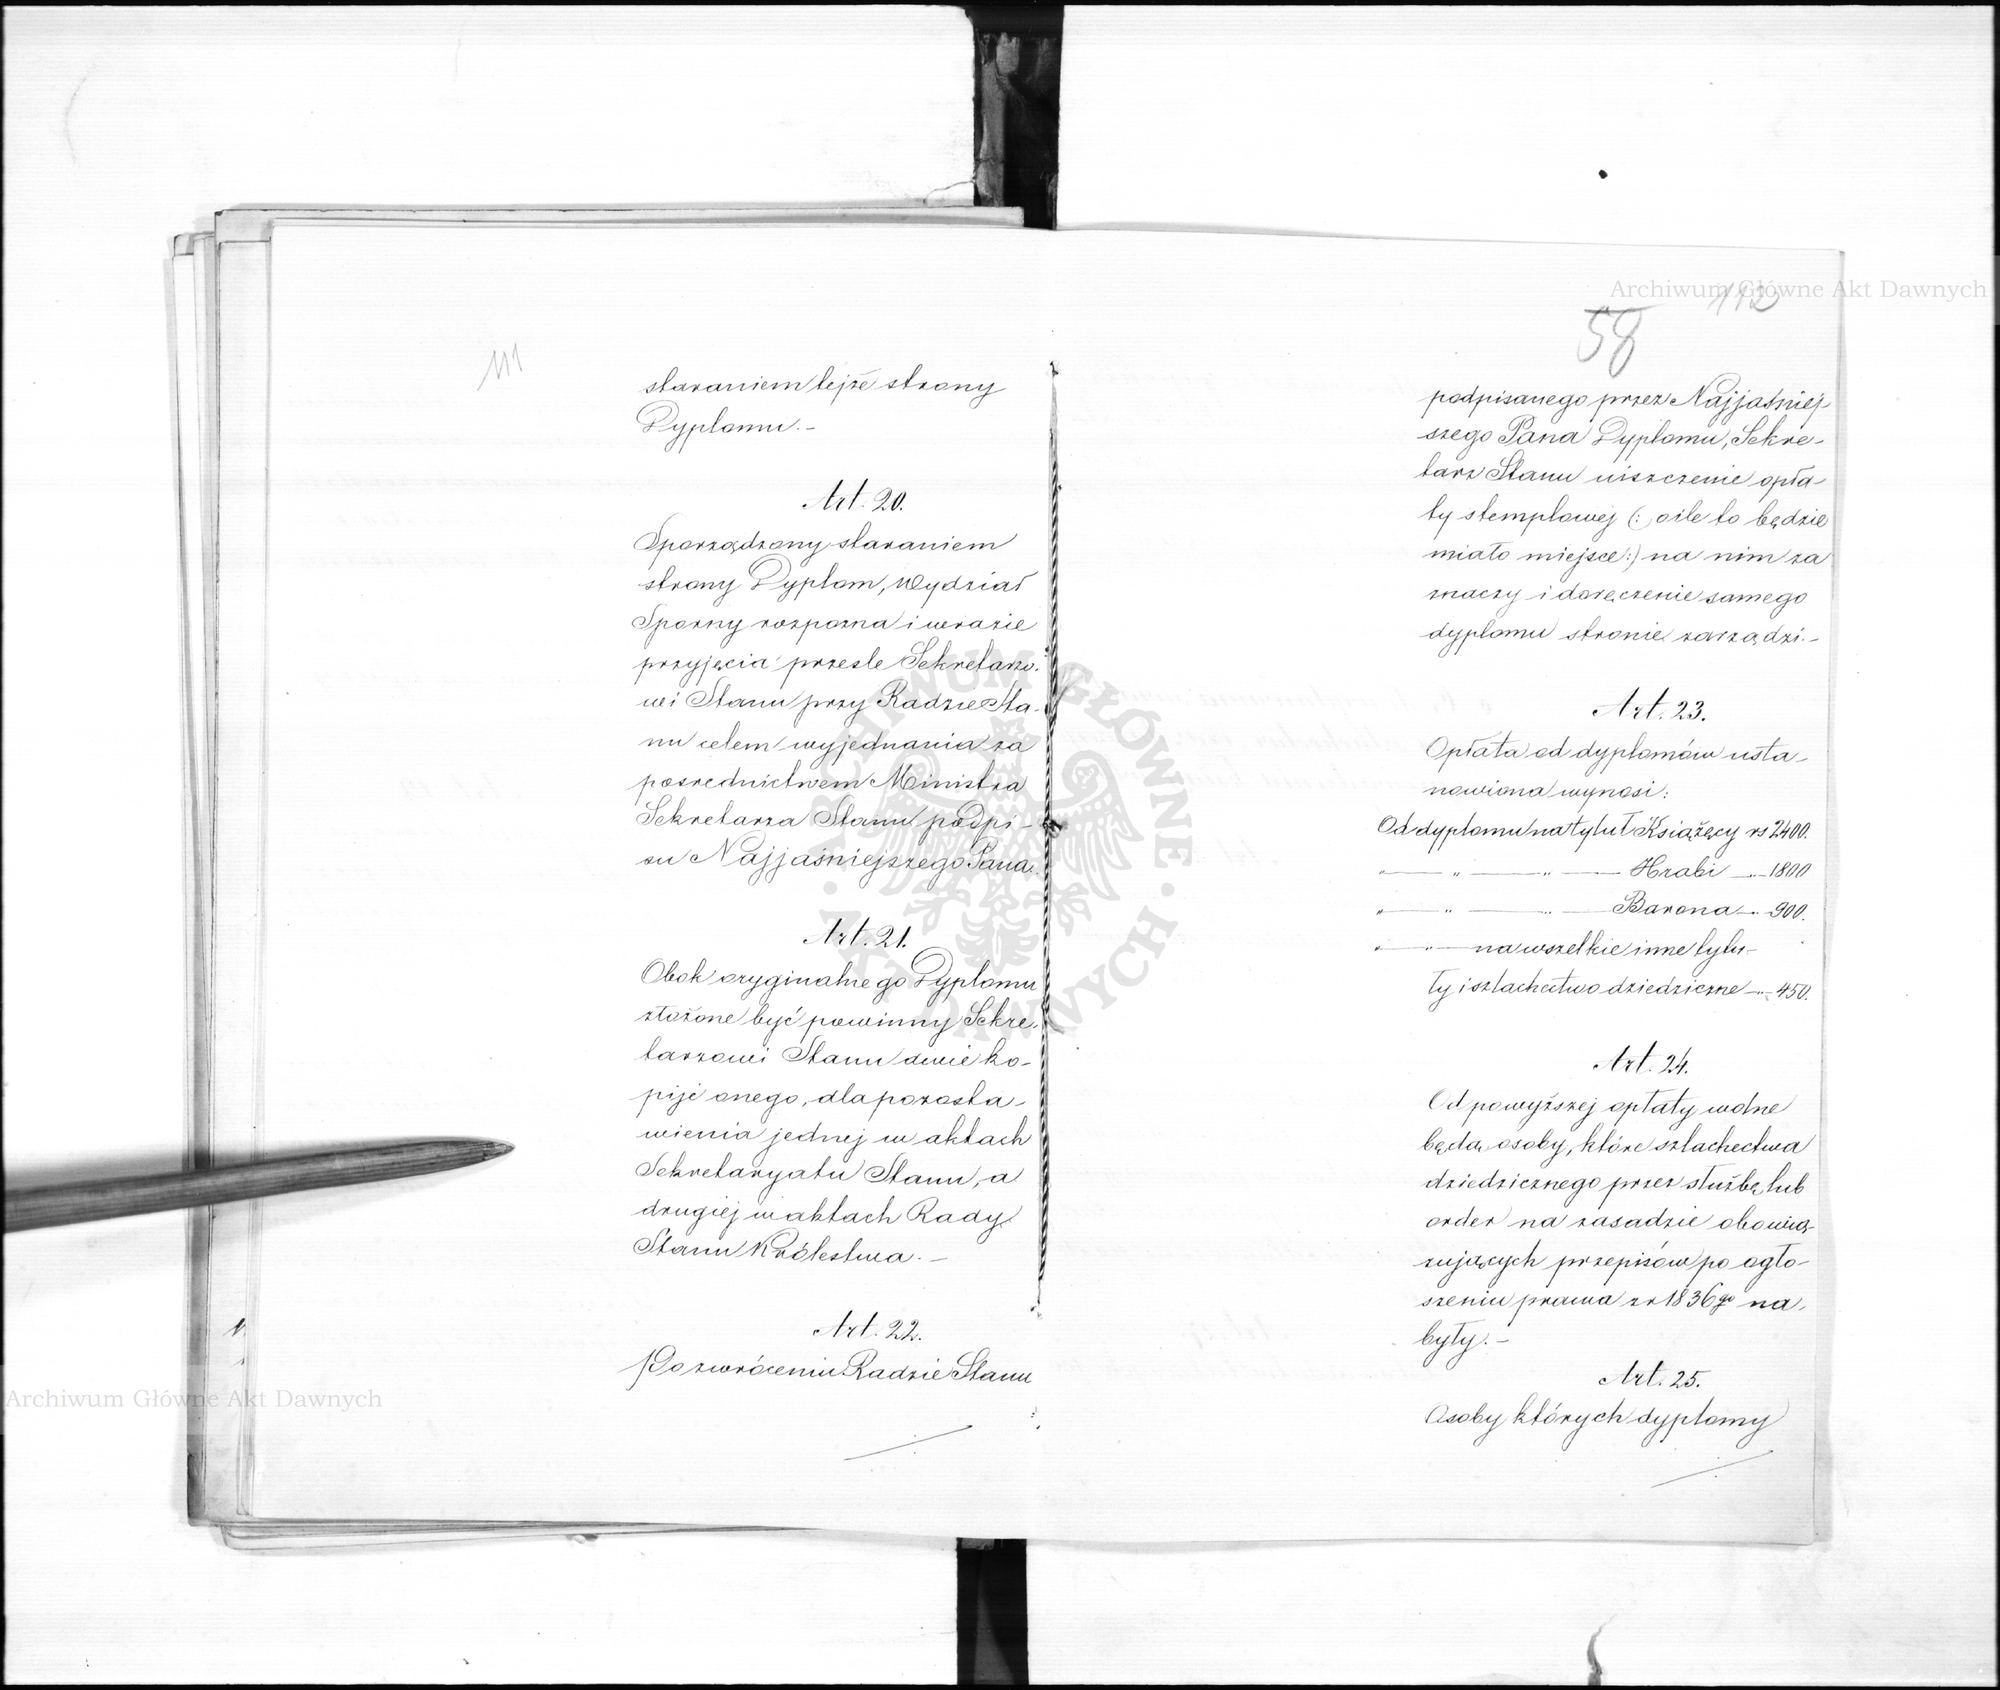 111
staraniem tejże strony
Dyplomu. –
Art. 20.
Sporządzony staraniem
strony Dyplom, Wydział
Sporny rozpozna i w razie
przyjęcia prześle Sekretarzo-
wi Stanu przy Radzie Sta-
nu celem wyjednania za
pośrednictwem Ministra
Sekretarza Stanu podpi-
su Najjaśniejszego Pana.
Art. 21.
Obok oryginalnego Dyplomu
złożone być powinny Sekre-
tarzowi Stanu dwie ko-
pije onego, dla pozosta-
wienia jednej w aktach
Sekretaryatu Stanu, a
drugiéj w aktach Rady
Stanu Królestwa. –
Art. 22.
Po zwróceniu Radzie Stanu
112
58
podpisanego przez Najjaśniej-
szego Pana Dyplomu, Sekre-
tarz Stanu uiszczenie opła-
ty stemplowej (: o ile to będzie
miało miejsce :) na nim za
znaczy i doręczenie samego
dyplomu stronie zarządzi. –
Art. 23.
Opłata od dyplomów usta-
nowiona wynosi:
Od dyplomu na tytuł Książęcy rs 2400.
" " " Hrabi " 1800
" " " Barona " 900.
" " na wszelkie inne tytu-
ły i szlachectwo dziedziczne " 450.
Art. 24.
Od powyższej opłaty wolne
będą osoby, które szlachectwa
dziedzicznego przez służbę lub
order na zasadzie obowią-
zujących przepisów po ogło-
szeniu prawa z r 1836go na-
były. –
Art. 25.
Osoby których dyplomy
Archiwum Główne Akt Dawnych
Archiwum Główne Akt Dawnych
ARCHIWUM GŁÓWNE AKT DAWNYCH